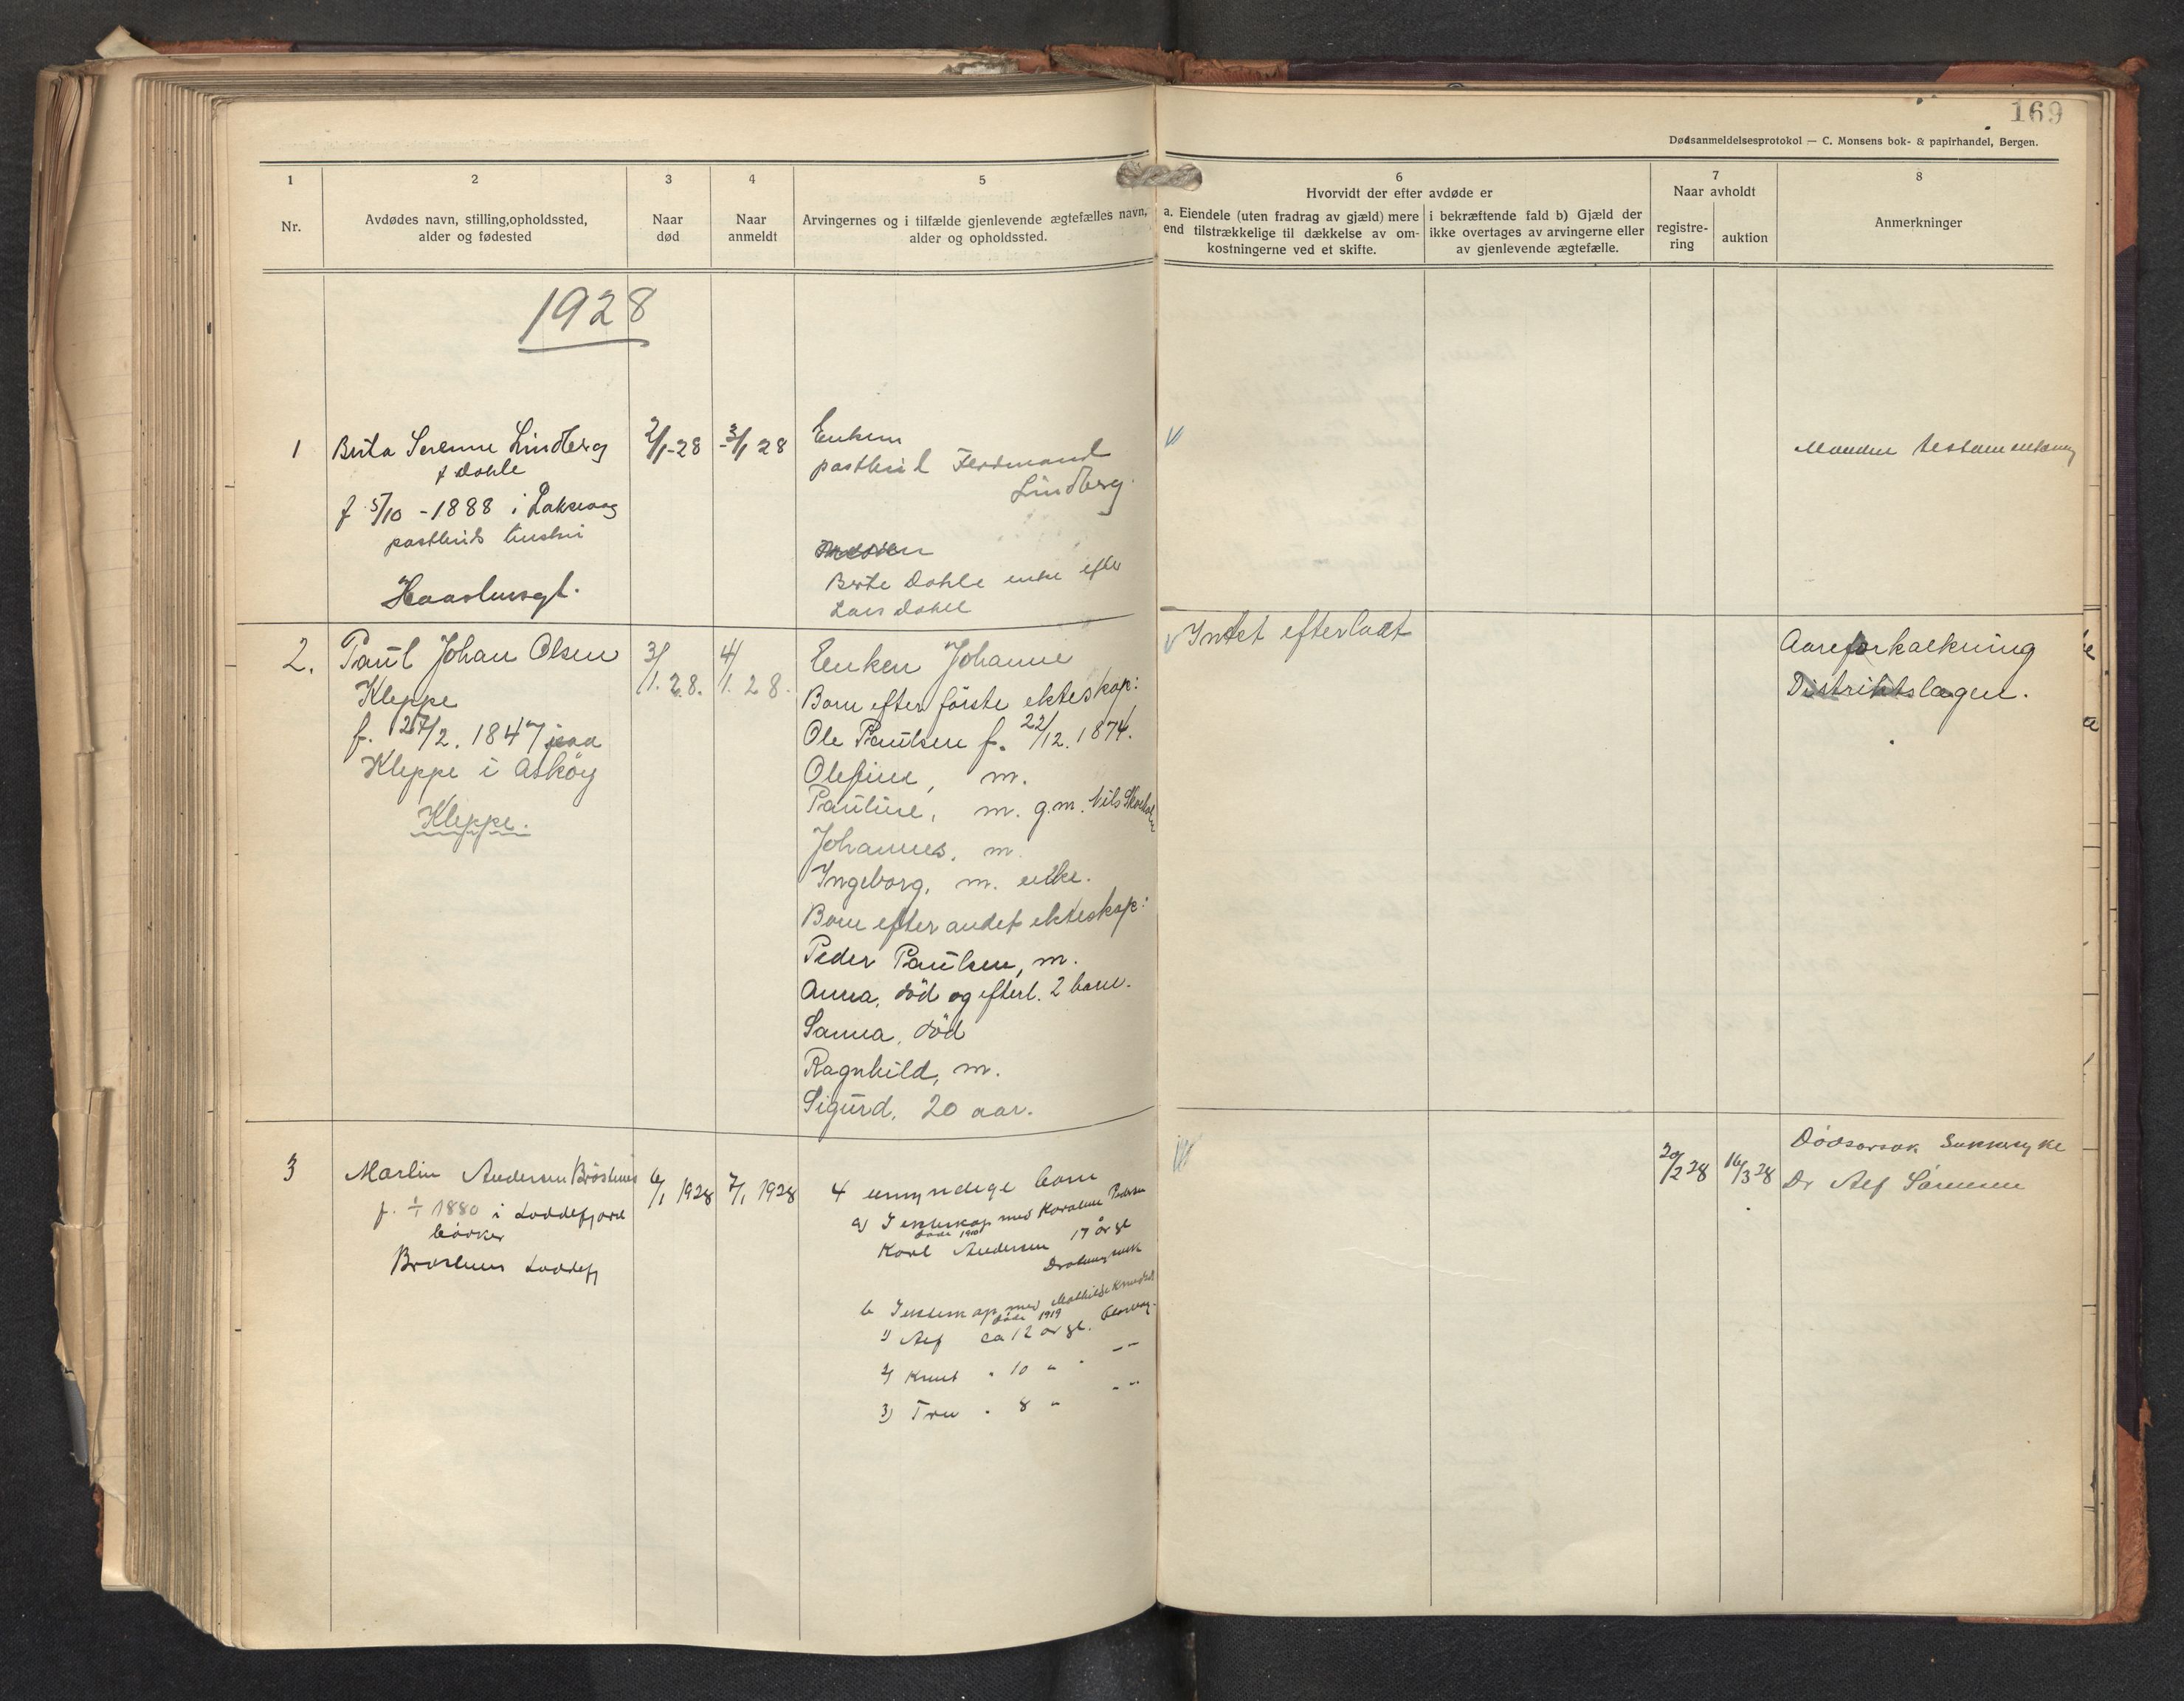 169
Dødsanmeldelsesprotokol — C. Monsens bok- & papirhandel, Bergen.
1
Nr.
2
Avdødes navn, stilling, opholdssted,
alder og fødested
3
Naar
død
4
Naar
anmeldt
5
Arvingernes og i tilfælde gjenlevende ægtefælles navn,
alder og opholdssted.
6
Hvorvidt der efter avdøde er
a. Eiendele (uten fradrag av gjæld) mere
end tilstrækkelige til dækkelse av om-
kostningerne ved et skifte.
i bekræftende fald b) Gjæld der
ikke overtages av arvingerne eller
av gjenlevende ægtefælle.
7
Naar avholdt
registre-
ring
auktion
8
Anmerkninger
1928
1
Berta Serenne Lindberg
f Dahle
f 5/10 - 1888 i Laksevaag
postbuds hustru
2/1-28
3/1 28
postbud Ferdinand
Lindberg.
Berte Dahle enke efter
Lars Dahle
2.
Paul Johan Olsen
Kleppe
f. 27/2. 1847 paa
Kleppe i Asköy
Kleppe.
3/1. 28.
4/1. 28.
Enken Johanne
Barn efter förste ekteskap:
Ole Paulsen f. 22/12. 1874.
Olefine, m.
Pauline, m. g.m. Nils
Johannes, m.
Ingeborg, m. enke.
Barn efter andet ekteskap:
Peder Paulsen, m.
Anna, död og efterl. 2 barn.
Sanna, död
Ragnhild, m.
Sigurd, 20 aar.
Intet efterladt
Aareforkalkning
Distriktslægen.
3
Martin Andersen
f. 1/1 1880 i Loddefjord
6/1 1928
7/1 1928
4 umyndige barn
a) I ekteskap med Karoline Pedersen
døde 1910
Karl Andersen 17 år gl
b I ekteskap med Mathilde
døde 1919
1) Alf ca 12 år gl.
2) Knut " 10 " " — —
3) " 8 " — —
20/2 28
16/3 28
Dödsorsak Sukkersyke
Dr Alf Sörensen